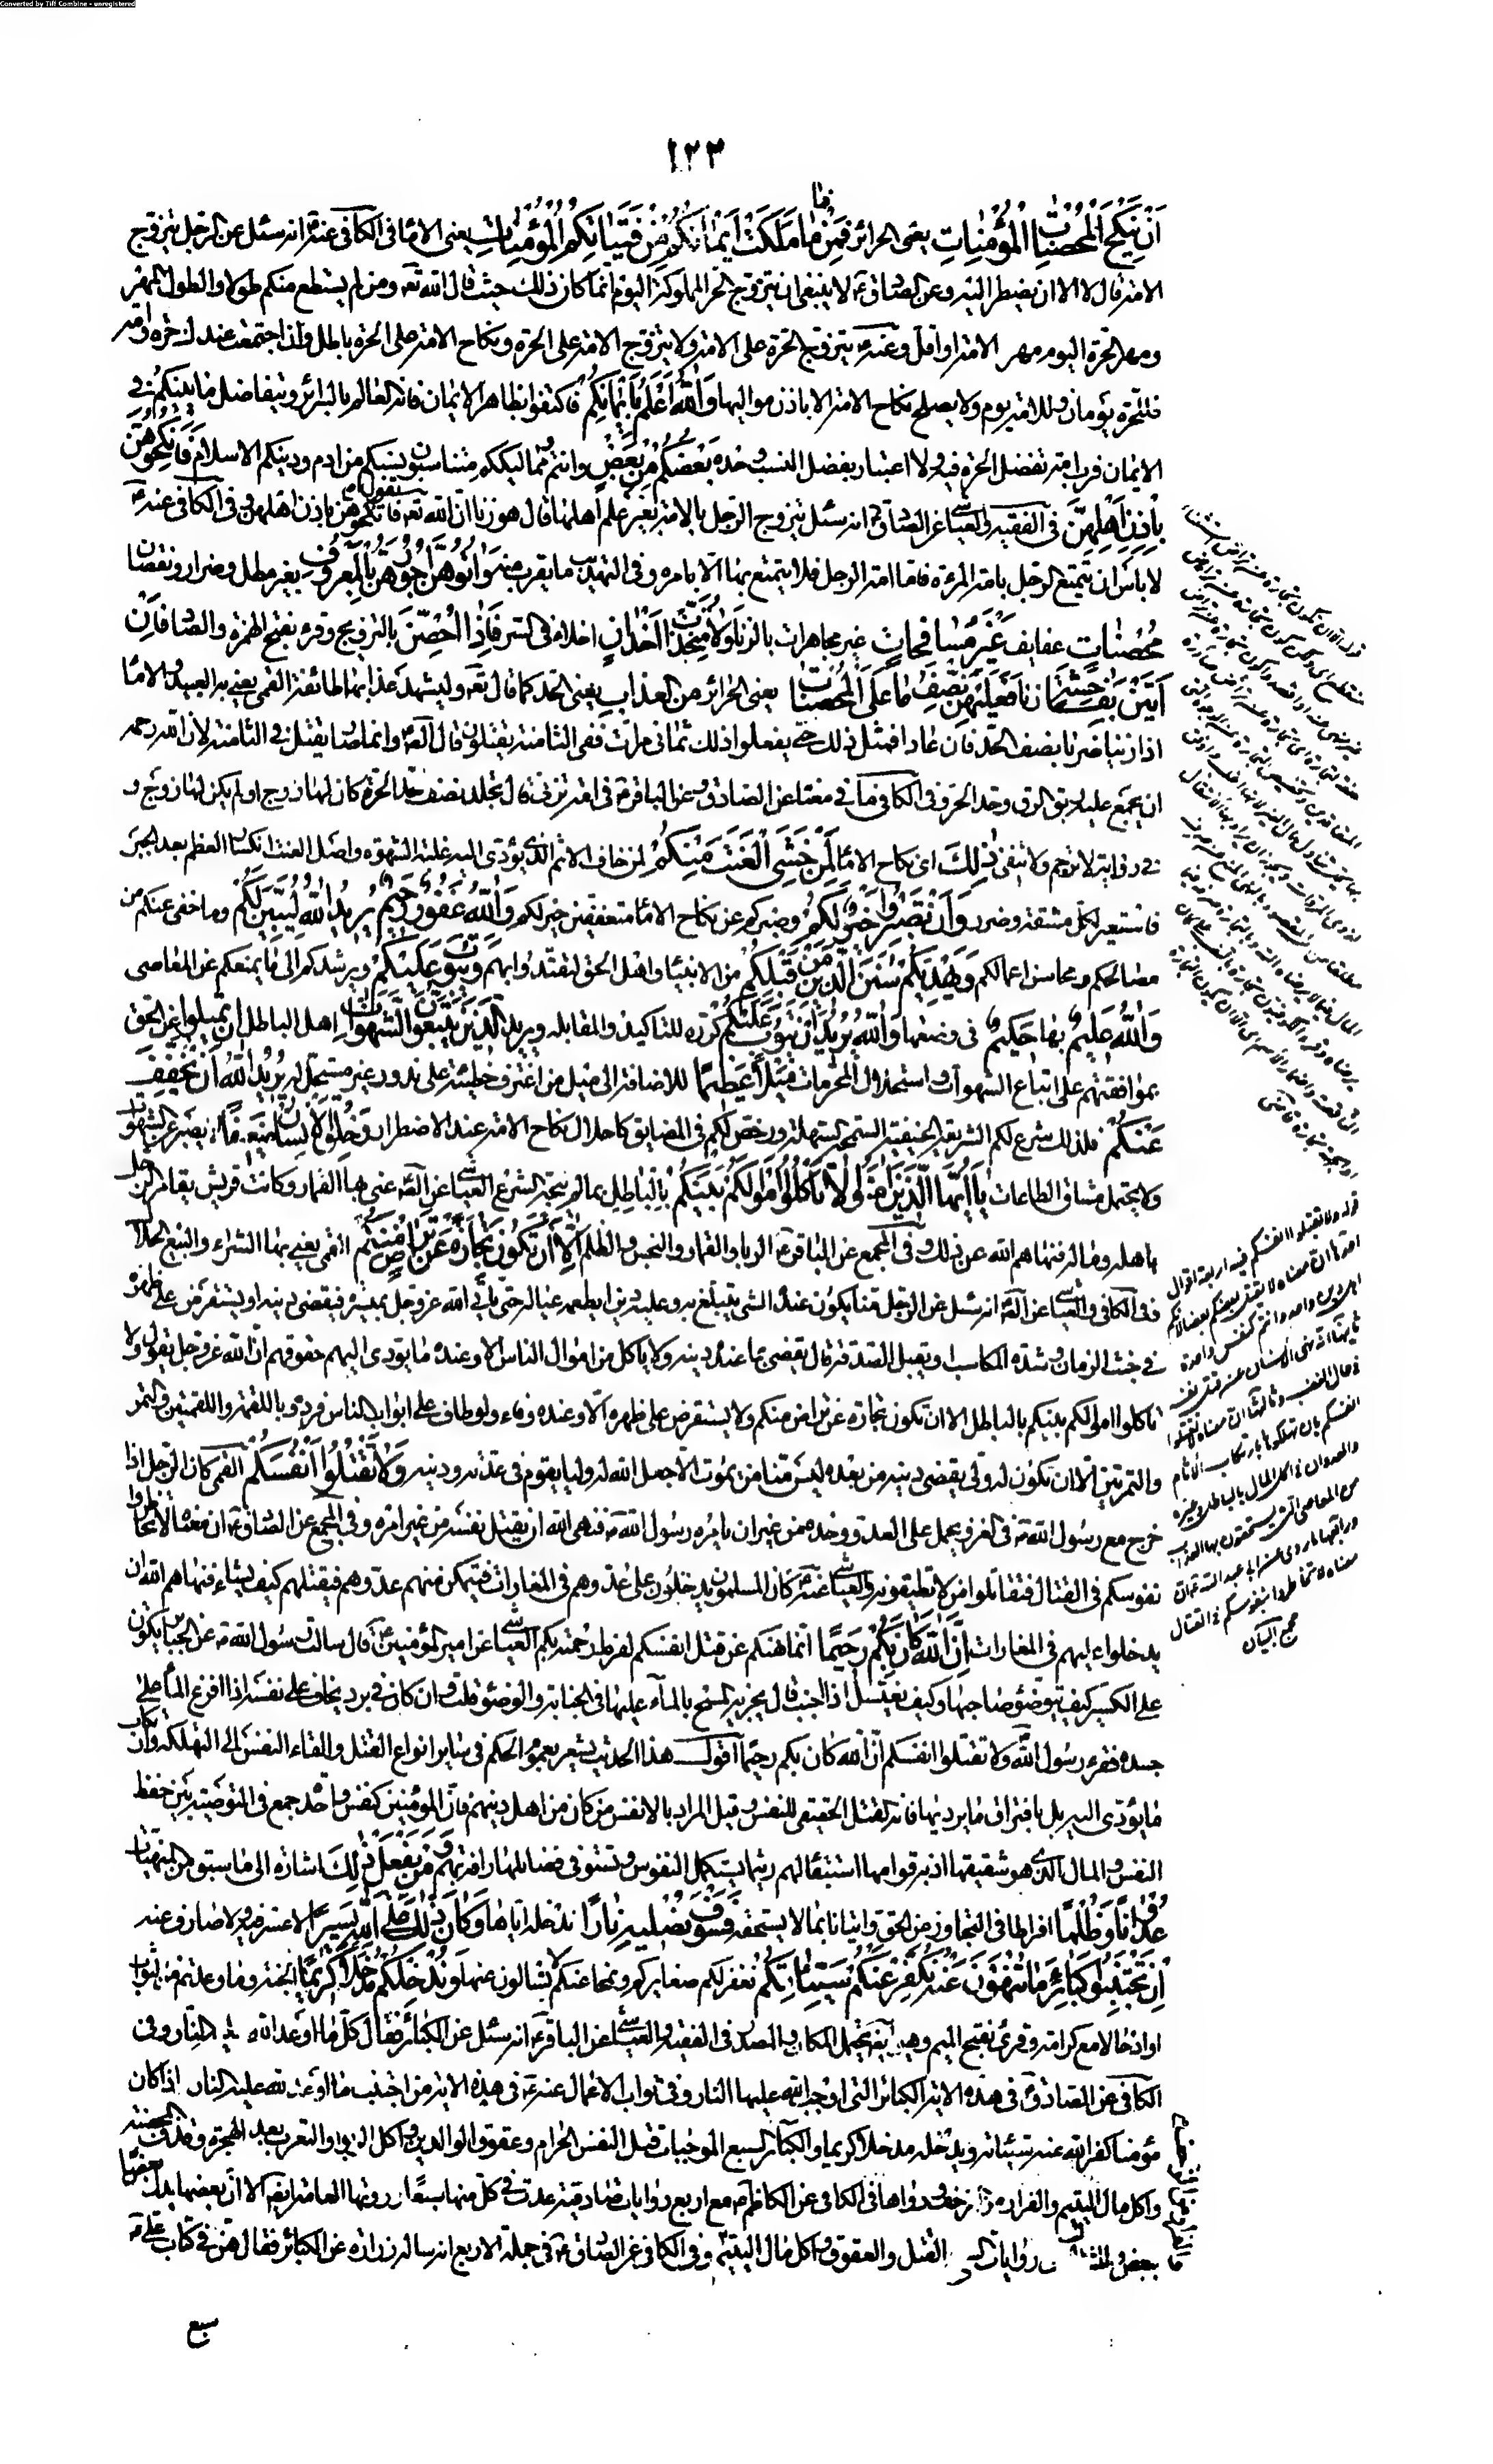 Converted by Tiff Combine - unregistered
١٢٣
اَنْ يَنْكِحَ الْمُحْصَنٰاتِ الْمُؤْمِنٰاتِ يعنى الحرائر فَمِنْ مٰا مَلَكَتْ اَيْمٰانُكُمْ مِنْ فَتَيٰاتِكُمُ الْمُؤْمِنٰاتِ يعنى الاماء فى الكافى عنه ع انه سئل عن الرجل يتزوج
الامة قال لا الا ان يضطر اليه وعن الصادق ع لا ينبغى ان يتزوج الحر المملوكة اليوم انما كان ذلك حيث قال الله تعه ومن لم يستطع منكم طولا والطول المهر
ومهر الحرة اليوم مهر الامة او اقل وعنه ع يتزوج الحرة على الامة ولا يتزوج الامة على الحرة ونكاح الامة على الحرة باطل واذا اجتمعت عندك حرة وامة
فللحرة يومان وللامة يوم ولا يصلح نكاح الامة الا باذن مواليها وَاللّٰهُ اَعْلَمُ بِاِيمٰانِكُمْ فاكتفوا بظاهر الايمان فانه العالم بالسرائر وبتفاضل ما بينكم فى
الايمان فرب امة تفضل الحرة فيه ولا اعتبار بفضل النسب وحده بَعْضُكُمْ مِنْ بَعْضٍ وانتم ومماليككم متناسبون نسبكم من ادم ودينكم الاسلام فَانْكِحُوهُنَّ
بِاِذْنِ اَهْلِهِنَّ فى الفقيه والعياشى عن الصادق ع انه سئل يتزوج الرجل بالامة بغير علم اهلها قال هو زنا ان الله تعه يقول فانكحوهن باذن اهلهن وفى الكافى عنه ع
لا باس ان يتمتع الرجل بامة المرءة فاما امة الرجل فلا يتمتع بها الا بامره وفى التهذيب ما يقرب منه وَاٰتُوهُنَّ اُجُورَهُنَّ بِالْمَعْرُوفِ بغير مطل وضرار ونقصان
مُحْصَنٰاتٍ عفايف غَيْرَ مُسٰافِحٰاتٍ غير مجاهرات بالزنا وَلاٰ مُتَّخِذٰاتِ اَخْدٰانٍ اخلاء فى السر فَاِذٰا اُحْصِنَّ بالتزويج وقرء بفتح الهمزة والصاد فَاِنْ
اَتَيْنَ بِفٰاحِشَةٍ زنا فَعَلَيْهِنَّ نِصْفُ مٰا عَلَى الْمُحْصَنٰاتِ يعنى الحرائر من العذاب يعنى الحد كما قال تعه وليشهد عذابهما طائفة القمى يعنى به العبيد والاماء
اذا زنيا ضربا نصف الحد فان عاد فمثل ذلك حتى يفعلوا ذلك ثمانى مرات ففى الثامنة يقتلون قال ع وانما صار يقتل فى الثامنة لان الله رحمه
ان يجمع عليه ربق الرق وحد الحر وفى الكافى ما فى معناه عن الصادق ع وعن الباقر ع فى امة تزنى قال تجلد نصف حد الحرة كان لها زوج او لم يكن لها زوج و
فى رواية لا ترجم ولا تنفى ذٰلِكَ اى نكاح الاماء لِمَنْ خَشِيَ الْعَنَتَ مِنْكُمْ لمن خاف الاثم الذى يؤدى اليه غلبة الشهوة واصل العنت انكسار العظم بعد الجبر
فاستعير لكل مشقة وضرر وَاَنْ تَصْبِرُوا خَيْرٌ لَكُمْ وصبركم عن نكاح الاماء متعففين خير لكم وَاللّٰهُ غَفُورٌ رَحِيمٌ يُرِيدُ اللّٰهُ لِيُبَيِّنَ لَكُمْ وما خفى عنكم من
مصالحكم ومحاسن اعمالكم وَيَهْدِيَكُمْ سُنَنَ الَّذِينَ مِنْ قَبْلِكُمْ من الانبياء واهل الحق لتقتدوا بهم وَيَتُوبَ عَلَيْكُمْ ويرشدكم الى ما يمنعكم عن المعاصى
وَاللّٰهُ عَلِيمٌ بها حَكِيمٌ فى وضعها وَاللّٰهُ يُرِيدُ اَنْ يَتُوبَ عَلَيْكُمْ كرره للتاكيد والمقابله وَيُرِيدُ الَّذِينَ يَتَّبِعُونَ الشَّهَوٰاتِ اهل الباطل اَنْ تَمِيلُوا عن الحق
بموافقتهم على اتباع الشهوات واستحلال المحرمات مَيْلاً عَظِيمًا بالاضافة الى ميل من اقترف خطيئة على ندور غير مستحل له يُرِيدُ اللّٰهُ اَنْ يُخَفِّفَ
عَنْكُمْ فلذلك شرع لكم الشريعة الحنيفية السمحة السهلة ورخص لكم فى المضايق كاحلال نكاح الامة عند الاضطرار وَخُلِقَ الْاِنْسٰانُ ضَعِيفًا لا يصبر عن الشهوات
ولا يحتمل مشاق الطاعات يٰا اَيُّهَا الَّذِينَ اٰمَنُوا لاٰ تَأْكُلُوا اَمْوٰالَكُمْ بَيْنَكُمْ بِالْبٰاطِلِ بما لم يبحه الشرع العياشى عن الصادق ع عنى بها القمار وكانت قريش يقامر الرجل
باهله وماله فنهاهم الله عن ذلك وفى المجمع عن الباقر ع الربا والقمار والنجس والظلم اِلاّٰ اَنْ تَكُونَ تِجٰارَةً عَنْ تَرٰاضٍ مِنْكُمْ القمى يعنى بها الشراء والبيع الحلال
ففى الكافى والعياشى عن الصادق ع انه سئل عن الرجل منا يكون عنده الشئ يتبلغ به وعليه دين ايطعمه عياله حتى ياتى الله عز وجل بميسرة فيقضى دينه او يستقرض على ظهره
فى خبث الزمان وشدة المكاسب او يقبل الصدقة قال يقضى بما عنده دينه ولا ياكل من اموال الناس الا وعنده ما يؤدى اليهم حقوقهم ان الله عز وجل يقول ولا
تاكلوا اموالكم بينكم بالباطل الا ان تكون تجارة عن تراض منكم ولا يستقرض على ظهره الا وعنده وفاء ولو طاف على ابواب الناس فردوه باللقمة واللقمتين والتمرة
والتمرتين الا ان تكون له ولى يقضى دينه من بعده ليس منا من يموت الا جعل الله له وليا يقوم فى عدته ودينه وَلاٰ تَقْتُلُوا اَنْفُسَكُمْ القمى كان الرجل اذا
خرج مع رسول الله ص فى الغزو يحمل على العدو وحده من غير ان يامره رسول الله ص فنهى الله ان يقتل نفسه من غير امره وفى المجمع عن الصادق ع ان معناه لا تخاطروا
نفوسكم فى القتال فتقاتلوا من لا تطيقونه والعياشى عنه ع كان المسلمون يدخلون على عدوهم فى المغارات فيتمكن منهم عدوهم فيقتلهم كيف يشاء فنهاهم الله ان
يدخلوا عليهم فى المغارات اِنَّ اللّٰهَ كٰانَ بِكُمْ رَحِيمًا انما نهيكم عن قتل انفسكم لفرط رحمته بكم العياشى عن امير المؤمنين ع قال سالت رسول الله ص عن الجباير يكون
على الكسير كيف يتوضؤ صاحبها وكيف يغتسل اذا اجنب قال يجزيه المسح بالماء عليها فى الجنابة والوضوء قلت وان كان فى برد يخاف على نفسه اذا افرغ الماء على
جسده فقرء رسول الله ص ولا تقتلوا انفسكم ان الله كان بكم رحيما اقول هذا الحديث يشعر بعموم الحكم فى ساير انواع القتل والقاء النفس الى التهلكة وارتكاب
ما يؤدى اليه بل باقتراف ما يرديها فانه القتل الحقيقى للنفس وقيل المراد بالانفس من كان من اهل دينهم فان المؤمنين كنفس واحدة جمع فى التوصية بين حفظ
النفس والمال الذى هو شقيقها اذ به قوامها استبقاء لهم ريثما يستكمل النفوس وتستوفى فضائلها رافة بهم وَمَنْ يَفْعَلْ ذٰلِكَ اشارة الى ما سبق من المنهيات
عُدْوٰانًا وَظُلْمًا افراطا فى التجاوز عن الحق واتيانا بما لا يستحقه فَسَوْفَ نُصْلِيهِ نٰارًا ندخله اياها وَكٰانَ ذٰلِكَ عَلَى اللّٰهِ يَسِيرًا لا عسر فيه ولا صارف عنه
اِنْ تَجْتَنِبُوا كَبٰائِرَ مٰا تُنْهَوْنَ عَنْهُ نُكَفِّرْ عَنْكُمْ سَيِّئٰاتِكُمْ نغفر لكم صغايركم ونمحها عنكم لا تسالون عنها وَنُدْخِلْكُمْ مُدْخَلاً كَرِيمًا الجنة وما وعدتم من الثواب
او ادخالا مع كرامة وقرئ بفتح الميم وهو ايضا يحتمل المكان والمصدر فى الفقيه والعياشى عن الباقر ع انه سئل عن الكبائر فقال كل ما اوعد الله عليه النار وفى
الكافى عن الصادق ع فى هذه الاية الكبائر التى اوجب الله عليها النار وفى ثواب الاعمال عنه ع فى هذه الاية من اجتنب ما اوعد الله عليه النار اذا كان
مؤمنا كفر الله عنه سيئاته ويدخله مدخلا كريما والكبائر السبع الموجبات قتل النفس الحرام وعقوق الوالدين واكل الربوا والتعرب بعد الهجرة وقذف المحصنة
واكل مال اليتيم والفرار من الزحف ورواها فى الكافى عن الكاظم ع مع اربع روايات صادقية عدت فى كل منها سبعا وروتها العامة ايضا الا ان بعضها بدل بعضا
ببعض والمشترك روايات القتل والعقوق واكل مال اليتيم وفى الكافى عن الصادق ع فى جملة الاربع انه ساله زرارة عن الكبائر فقال هن فى كتاب على ع
سبع
قوله ولا تقتلوا انفسكم فيه اربعة اقوال
احدها ان معناه لا يقتل بعضكم بعضا لانكم
اهل دين واحد وانتم كنفس واحدة
ثانيها انه نهى الانسان عن قتل نفسه
فى حال الغضب وثالثها ان معناه لا تقتلوا
انفسكم بان تهلكوها بارتكاب الآثام
والعدوان فى اكل المال بالباطل وغيره
من المعاصى التى تستحقون بها العذاب
ورابعها ما روى عن ابى عبد الله ع ان
معناه لا تخاطروا بنفوسكم فى القتال
مجمع البيان